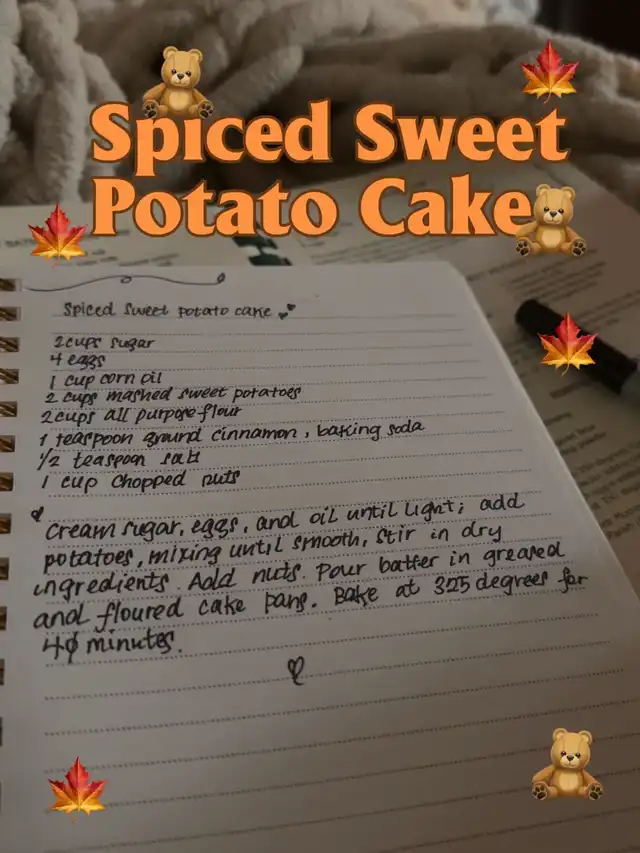 Spiced Sweet
Potato Cake
Spiced Sweet potato cake
2 cups sugar
4 eggs
1 cup corn oil
2 cups mashed sweet potatoes
2 cups all purpose flour
1 teaspoon ground cinnamon, baking soda
1/2 teaspoon salt
1 cup chopped nuts
Cream sugar, eggs, and oil until light; add
potatoes, mixing until smooth, stir in dry
ingredients. Add nuts. Pour batter in greased
and floured cake pans. Bake at 325 degrees for
40 minutes.